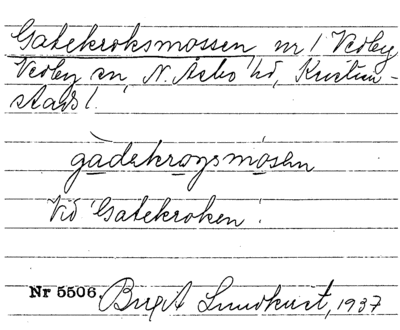 Gatekroksmossen, nr 1 Vedby
Vedby sn, N. Åsbo hd, Kristian-
stads l.
gàdekrɑgsmósen
Vid Gatekroken.
Nr 5506. Birgit Lundkvist, 1937